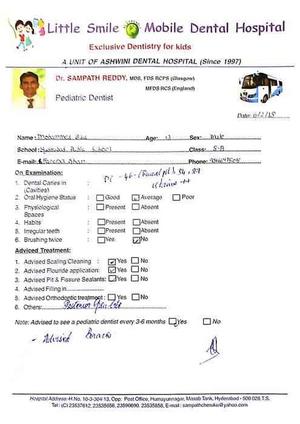 Little Smile Mobile Dental Hospital
Exclusive Dentistry for kids
A UNIT OF ASHWINI DENTAL HOSPITAL (Since 1997)
Dr. SAMPATH REDDY, MDS, FDS RCPS (Glasgow)
MFDS RCS (England)
Pediatric Dentist
Name : Mohammed Age: 13 Sex: Male
School : Public School Class:
E-mail : Phone:
On Examination:
1. Dental Caries in (Cavities)
2. Oral Hygiene Status : Good Average Poor
3. Physiological Spaces Present Absent
4. Habits Present Absent
5. Irregular teeth Present Absent
6. Brushing twice Yes No
Adviced Treatment:
1. Advised Scaling Cleaning : Yes No
2. Advised Flouride application: Yes No
3. Advised Pit & Fissure Sealants: Yes No
4. Advised Filling in
5. Advised Orthodontic treatment : Yes No
6. Others:
Note: Advised to see a pediatric dentist every 3-6 months Yes No
- Advised Braces
Hospital Address-H.No. 10-3-304/13, Opp: Post Office, Humayunnagar, Masab Tank, Hyderabad - 500 028 T.S.